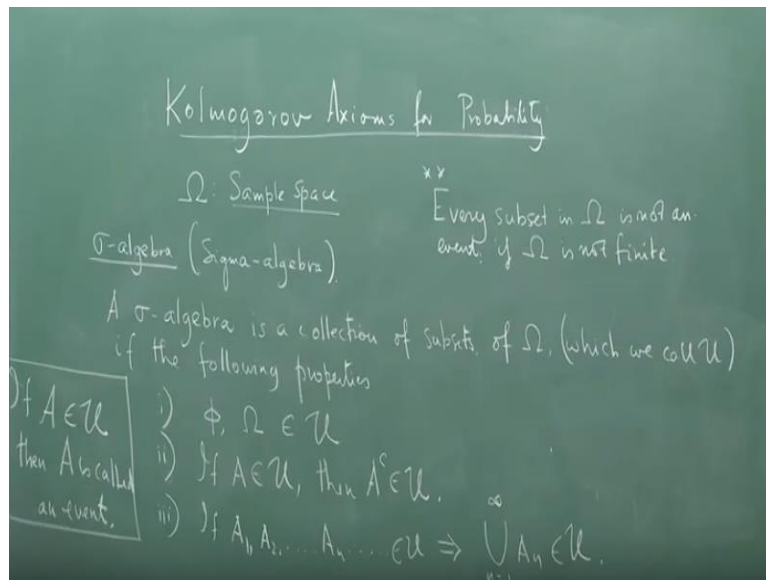 Kolmogorov Axioms for Probability
Ω: Sample space
** Every subset in Ω is not an
event, if Ω is not finite
σ-algebra (Sigma-algebra).
A σ-algebra is a collection of subsets of Ω, (which we call 𝒰)
if the following properties
i) ϕ, Ω ∈ 𝒰
ii) If A ∈ 𝒰, then Aᶜ ∈ 𝒰.
iii) If A₁, A₂, .... Aₙ .... ∈ 𝒰 ⇒ ⋃ₙ₌₁^∞ Aₙ ∈ 𝒰.
If A ∈ 𝒰
then A is called
an event.